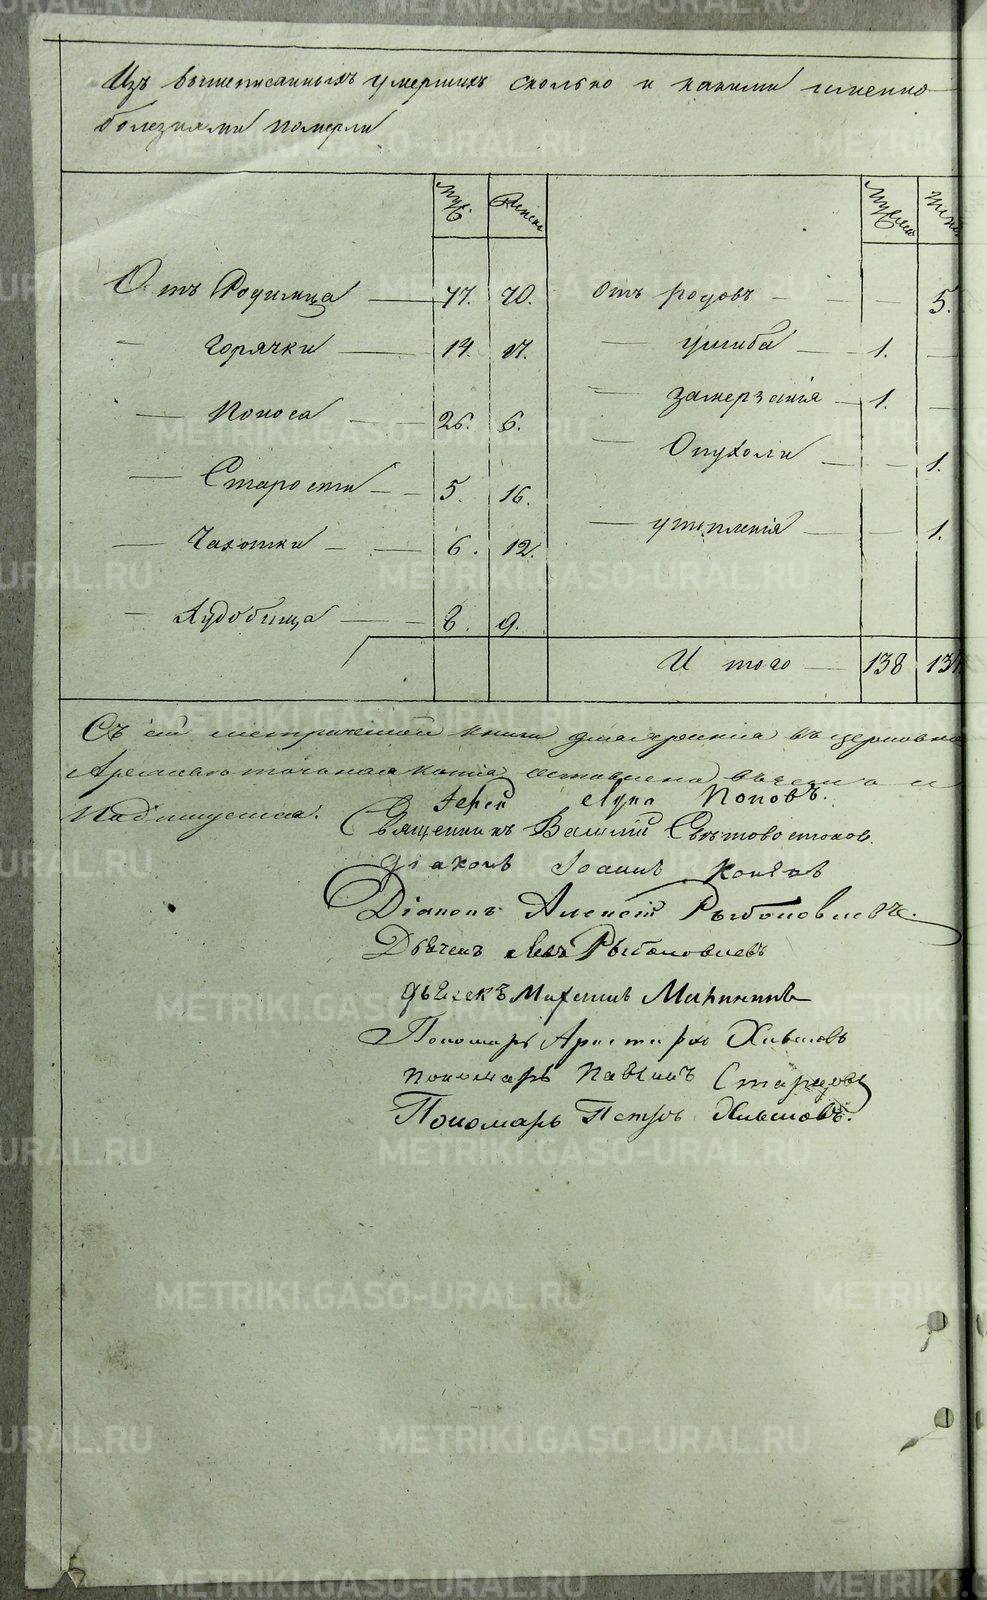 Изъ вышеписанныхъ умершихъ сколько и какими именно
болезнями померли
Муж. Женск. Мужеск. Женск
Отъ Родимца 77. 70. Отъ родовъ 5.
Горячки 14. 17. ушиба 1.
Поноса 26. 6. замерзанiя 1.
Старости 5. 16. Опухоли 1.
Чахотки 6. 12. утопленiя 1.
Худобища 8. 9.
И того 138 137
Съ сей метрической книги для храненiя въ церковно
Архивѣ точная копiя оставлена въ чемъ и
подпишуемся.
Iерей Лука Поповъ.
Священникъ Василiй Свѣтовостоков.
Дiаконъ Iоаннъ Коняевъ
Дiаконъ Алексiй Рыболовлевъ.
Дьячекъ Левъ Рыболовлевъ
Дьячекъ Михаилъ
Пономарь Аристархъ Хлыновъ
пономарь Павелъ Старцовъ
Пономарь Петръ Хлыновъ.
METRIKI.GASO-URAL.RU